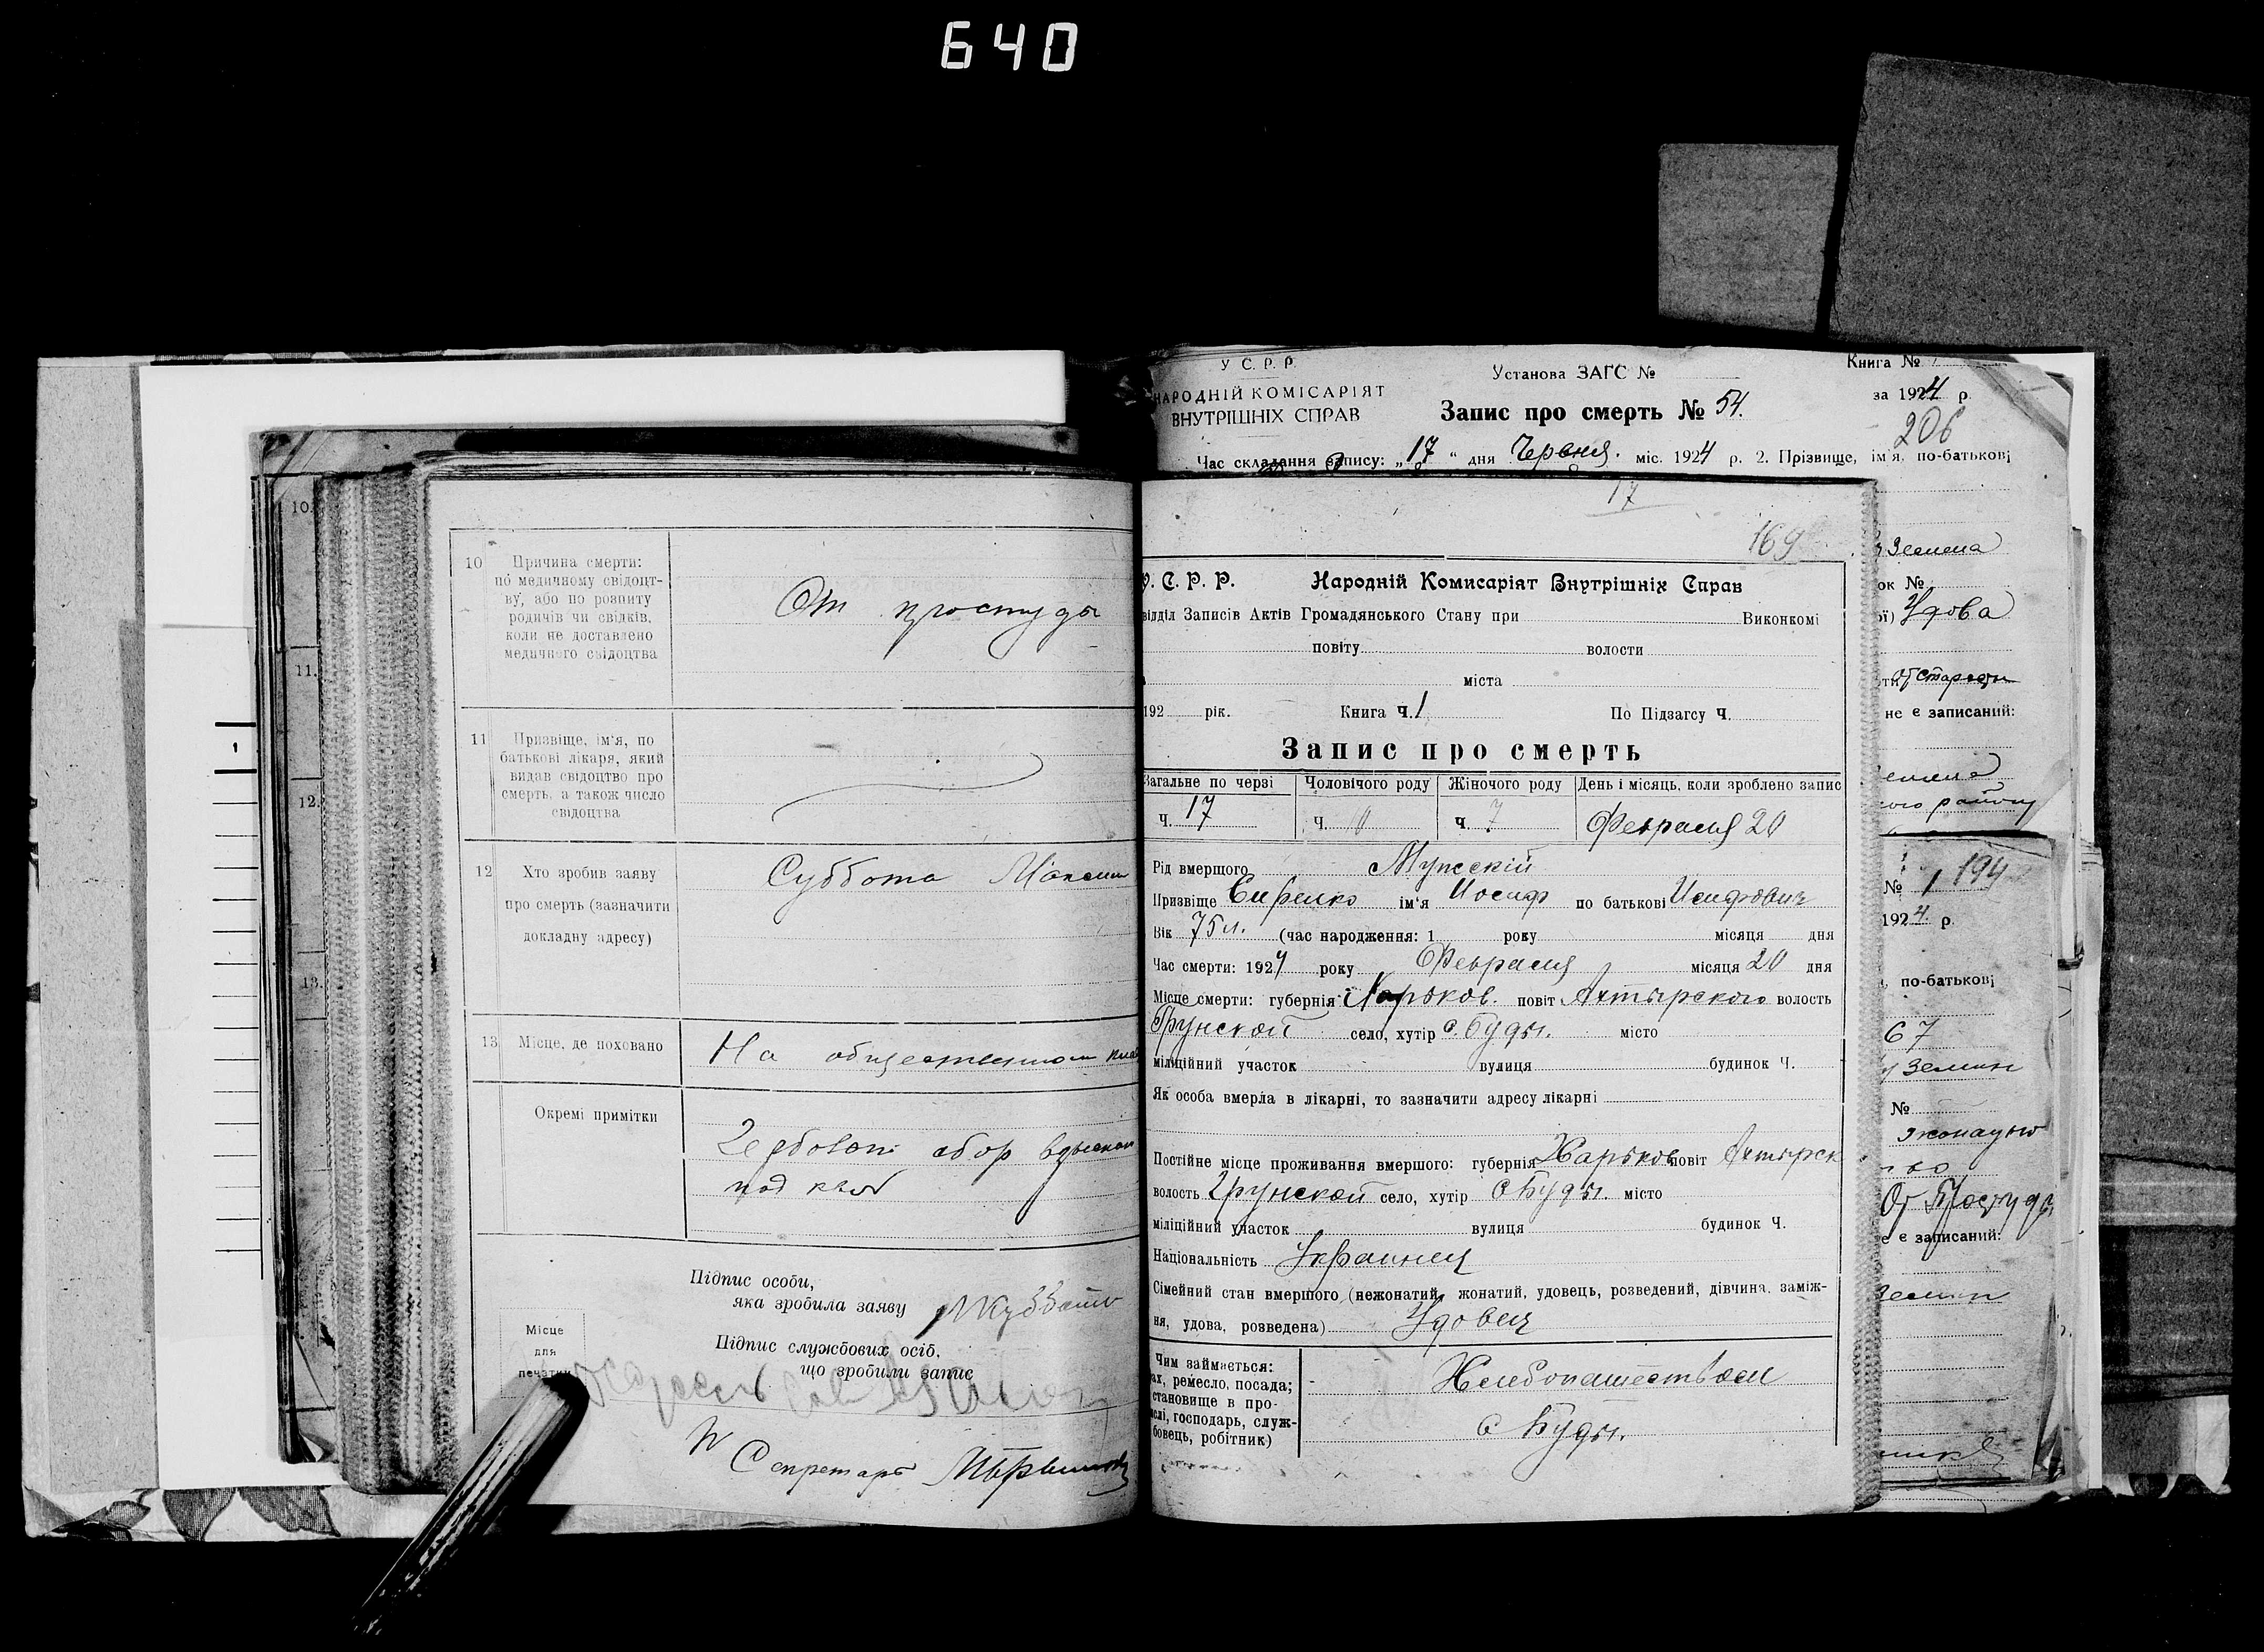 640
10
Причина смерти:
по медичному свідоцт-
ву, або по розпиту
родичів чи свідків,
коли не доставлено
медичного свідоцтва
От простуды
11
Призвіще, ім'я, по
батькові лікаря, який
видав свідоцтво про
смерть, а також число
свідоцтва
12
Хто зробив заяву
про смерть (зазначити
докладну адресу)
Суббота Максим
13
Місце, де поховано
На общественном
Окремі примітки
Гербовый сбор
под
Підпис особи,
яка зробила заяву
Підпис службових осіб,
що зробили запис
Місце
для
печатки
Секретарь
10.
11.
12.
13.
У С. Р. Р.
НАРОДНІЙ КОМІСАРІЯТ
ВНУТРІШНІХ СПРАВ
Установа ЗАГС №
Книга №
за 1924 р.
Запис про смерть № 54.
206
Час складання запису: „17“ дня Червня. міс. 1924 р. 2. Прізвище, ім'я, по-батькові
17
169
У. С. Р. Р. Народній Комисаріят Внутрішніх Справ
відділ Записів Актів Громадянського Стану при Виконкомі
повіту волости
міста
192 рік. Книга ч. 1 По Підзагсу ч.
Запис про смерть
Загальне по черзі Чоловічого роду Жіночого роду День і місяць, коли зроблено запис
ч. 17 ч. 10 ч. 7 Февраля 20
Рід вмершого Мужскій
Призвіще ім'я Иосиф по батькові Иосифович
Вік 75 л. (час народження: 1 року місяця дня
Час смерти: 1924 року Февраля місяця 20 дня
Місце смерти: губернія Харьков. повіт Ахтырского волость
Грунской село, хутір с. Буды. місто
міліційний участок вулиця будинок Ч.
Як особа вмерла в лікарні, то зазначити адресу лікарні
Постійне місце проживання вмершого: губернія Харьков повіт Ахтырск
волость Грунской село, хутір с Буды. місто
міліційний участок вулиця будинок Ч.
Національність Украинец
Сімейний стан вмершого (нежонатий, жонатий, удовець, розведений, дівчина, заміж-
ня, удова, розведена) Удовец
Чим займається:
ах, ремесло, посада;
становище в про-
слі, господарь, служ-
бовець, робітник)
Хлебопашеством
с Буды.
ок №
Удова
От старости
не є записаний:
ого району
№ 1 194
1924 р.
по-батькові
67
№
От Простуды
є записаний: